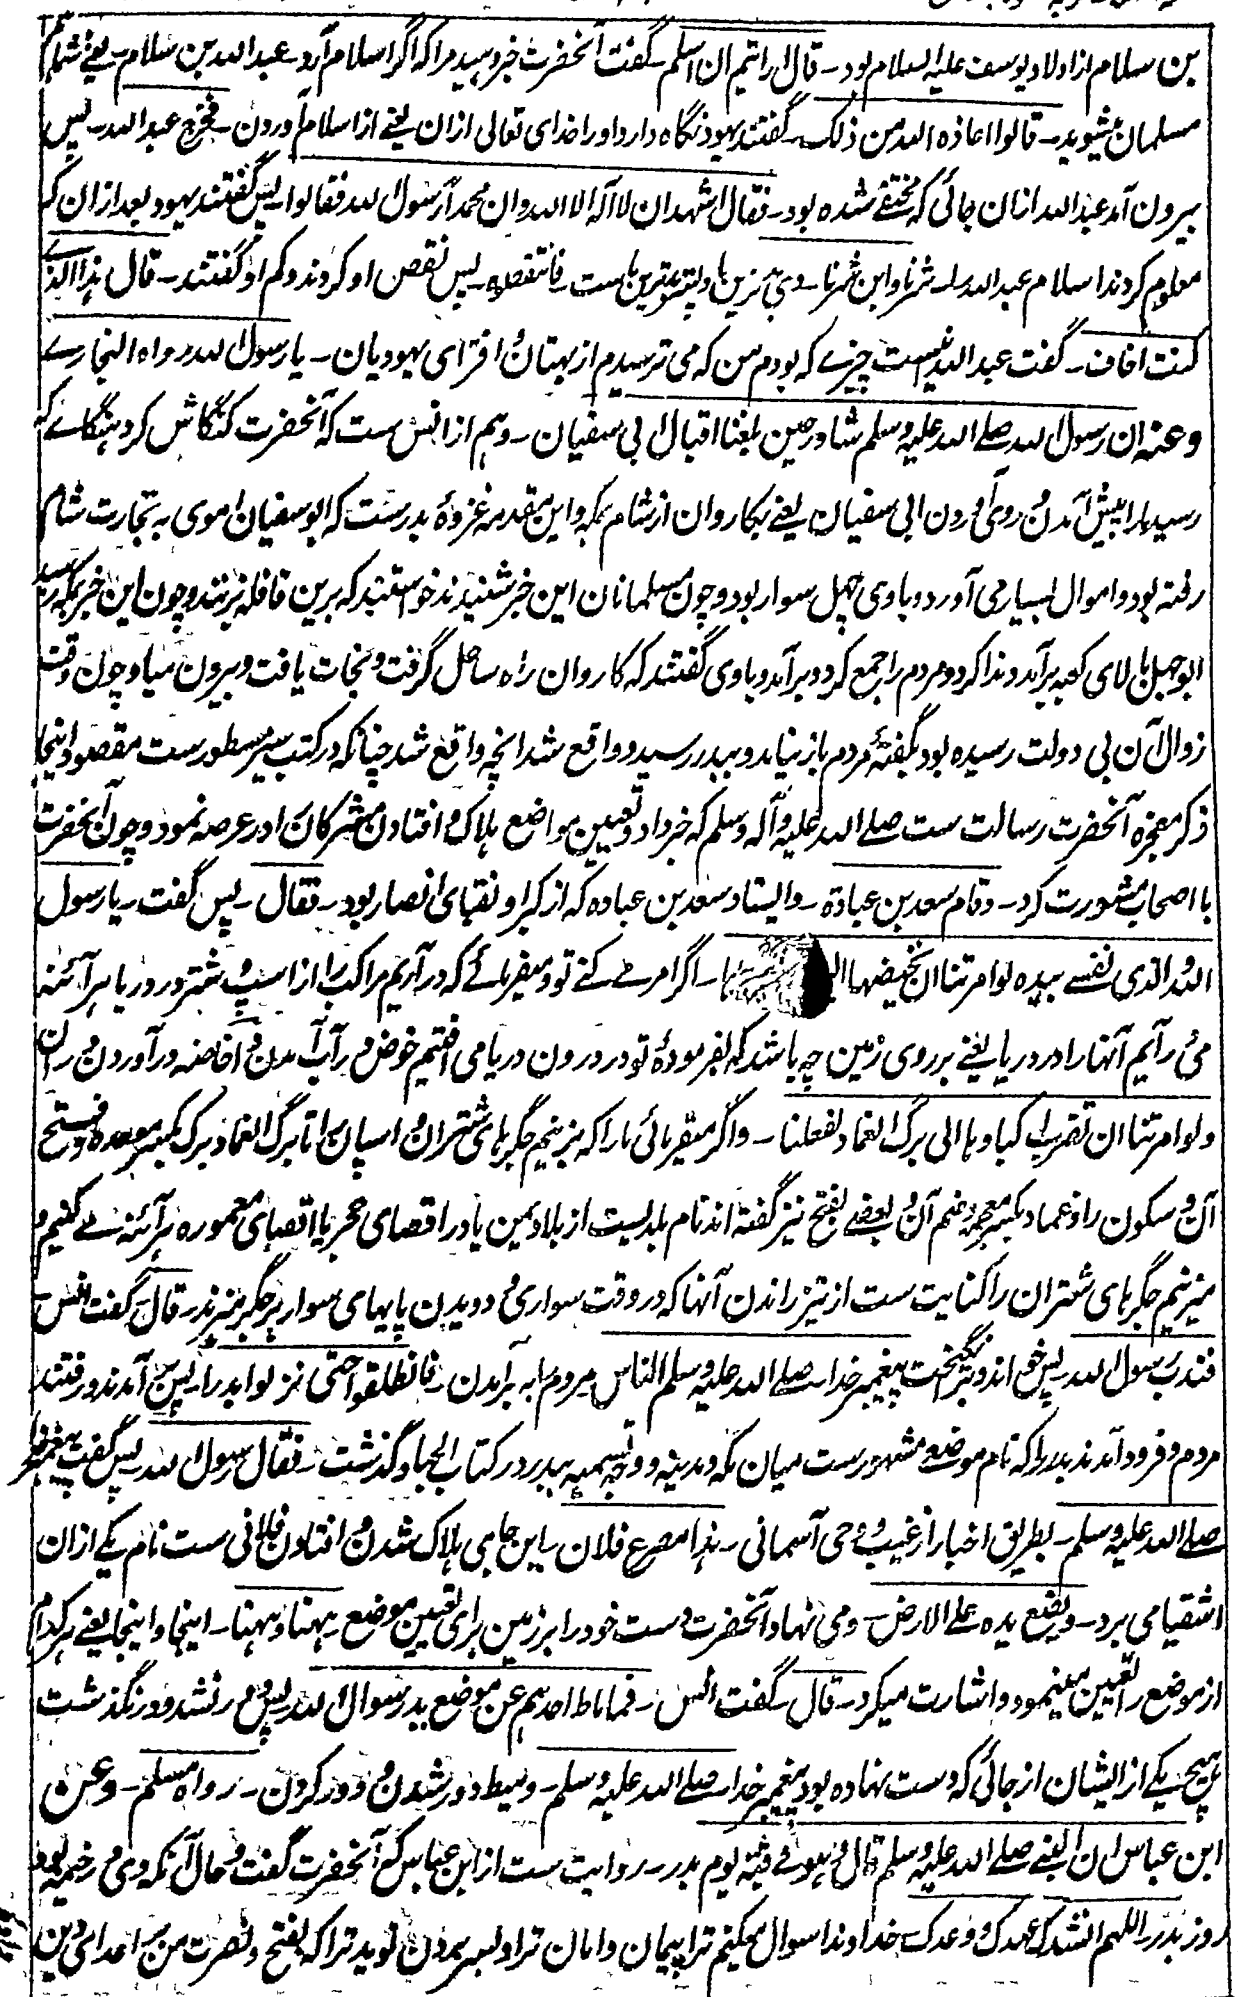 بن سلام از اولاد یوسف علیه السلام بود ـ قال ارایتم ان اسلم ـ گفت آنحضرت خبر دهید مرا که اگر اسلام آرد ـ عبد الله بن سلام ـ یعنی شما هم
مسلمان میشوید ـ قالوا اعاذه الله من ذلک ـ گفتند یهود نگاه دارد او را خدای تعالی ازان یعنی از اسلام آوردن ـ فخرج عبد الله ـ پس
بیرون آمد عبد الله ازان جائی که مختفی شده بود ـ فقال اشهد ان لا اله الا الله وان محمدا رسول الله فقالوا ـ پس گفتند یهود بعد ازان که
معلوم کردند اسلام عبد الله را ـ شرنا وابن شرنا ـ وی بدترین ما و پسر بدترین ماست ـ فانتقصوه ـ پس نقص او کردند و کم او گفتند ـ قال هذا الذی
کنت اخاف ـ گفت عبد الله اینست چیزے که بودم من که می ترسیدم از بهتان و افترای یهودیان ـ یا رسول الله رواه البخارے
وعنه ان رسول الله صلے الله علیه وسلم شاور حین بلغنا اقبال ابی سفیان ـ وهم از انس ست که آنحضرت کنگاش کرد هنگامے که
رسید ما را پیش آمدن و روی آوردن ابی سفیان یعنی بکاروان از شام بمکه و این مقدمه غزوهٔ بدرست که ابو سفیان اموی به تجارت شام
رفته بود و اموال بسیار می آورد و باوی چهل سوار بود و چون مسلمانان این خبر شنیدند خواستند که برین قافله بزنند و چون این خبر بمکه رسید
ابو جهل بالای کعبه برآمد و ندا کرد و مردم را جمع کرد و برآمد و باوی گفتند که کاروان راه ساحل گرفت و نجات یافت و بیرون میا و چون وقت
زوال آن بی دولت رسیده بود بگفتهٔ مردم باز نیامد و ببدر رسید و واقع شد انچه واقع شد چنانکه در کتب سیر مسطورست مقصود اینجا
ذکر معجزه آنحضرت رسالت ست صلے الله علیه وآله وسلم که خبر داد و تعیین مواضع هلاک و افتادن مشرکان که در عرصه نمود و چون آنحضرت
با اصحاب مشورت کرد ـ وقام سعد بن عبادة ـ و ایستاد سعد بن عباده که از کبرا و نقبای انصار بود ـ فقال ـ پس گفت ـ یا رسول
الله والذی نفسے بیده لو امرتنا ان نخیضها ـ اگر امر مے کنے تو و میفرمائے که درآریم مراکب را از اسپ و شتر در دریا هر آئنه
می درآیم آنها را در دریا یعنے بر روی زمین چه باشد که بفرمودهٔ تو در درون دریا می افتیم خوض در آب آمدن و اخاضه درآوردن در ان
ولو امرتنا ان نضرب اکبادها الی برک الغماد لفعلنا ـ و اگر میفرمائی ما را که بزنیم جگرهای شتران و اسپان را تا برک الغماد برک بکسر موحده و فتح
آن و سکون را و غماد بکسر معجمه و ضم آن و بعضے بفتح نیز گفته اند نام بلدیست از بلاد یمن یا در اقصای هجر یا اقصای معموره هر آئنه مے کنیم و
میزنیم جگرهای شتران را کنایت ست از تیز راندن آنها که در وقت سواری و دویدن پایهای سوار بر جگر میزند ـ قال ـ گفت انس
فندب رسول الله پس خواند و برانگیخت پیغمبر خدا صلے الله علیه وسلم الناس مردم را به برآمدن ـ فانطلقوا حتی نزلوا بدرا ـ پس آمدند و رفتند
مردم و فرود آمدند بدر را که نام موضعے مشهورست میان مکه و مدینه و وجه تسمیه ببدر در کتاب الجهاد گذشت ـ فقال رسول الله پس گفت پیغمبر خدا
صلے الله علیه وسلم ـ بطریق اخبار از غیب و وحی آسمانی ـ هذا مصرع فلان ـ این جاى هلاک شدن و افتادن فلانی ست نام یکے ازان
اشقیا می برد ـ ویضع یده علے الارض ـ و می نهاد آنحضرت دست خود را بر زمین برای تعیین موضع ـ ههنا وههنا ـ اینجا و اینجا یعنے هر کدام
از موضع را تعیین مینمود و اشارت میکرد ـ قال ـ گفت انس ـ فماماط احدهم عن موضع ید رسول الله پس دور نشد و در نگذشت
هیچ یکے از ایشان از جائی که دست نهاده بود پیغمبر خدا صلے الله علیه وسلم ـ ومیط دور شدن و دور کردن ـ رواه مسلم ـ وعن
ابن عباس ان النبے صلے الله علیه وسلم قال وهو فے قبة یوم بدر ـ روایت ست از ابن عباس که آنحضرت گفت و حال آنکه وی در خیمه بود
روز بدر ـ اللهم انشدک عهدک ووعدک خداوندا سوال میکنم ترا پیمان و امان ترا و بسر بردن نوید ترا که بفتح و نصرت من بر اعدای دین